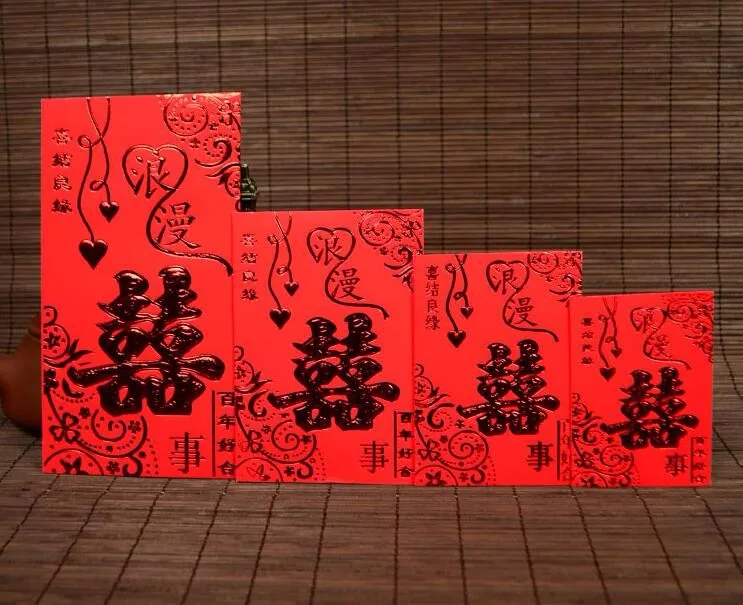 喜结良缘
浪漫
囍
事
百年好合
喜结良缘
浪漫
囍
事
百年好合
喜结良缘
浪漫
囍
事
年好
喜结良缘
浪漫
囍
事
百年好合